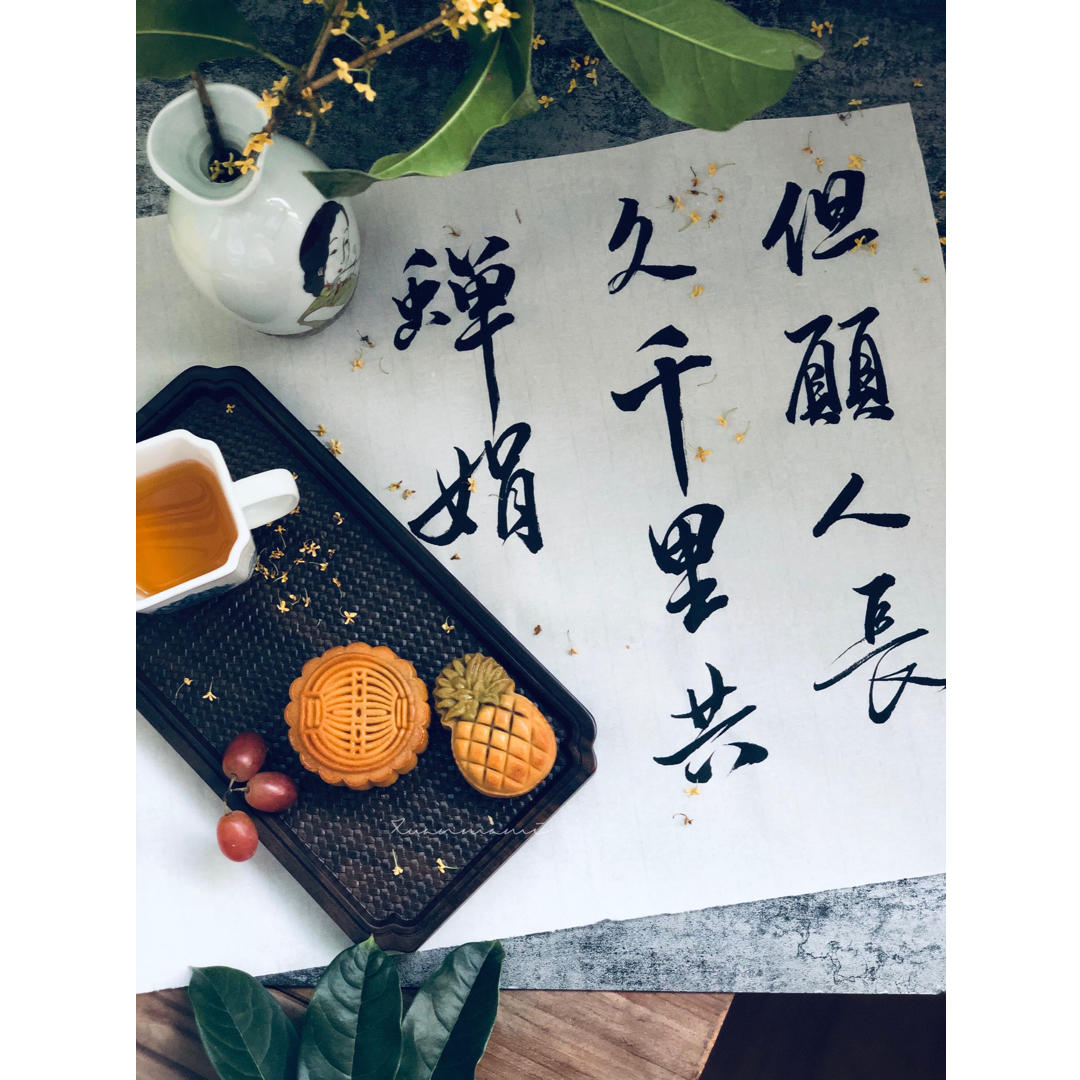 但願人長
久千里共
嬋娟
Xuanmami